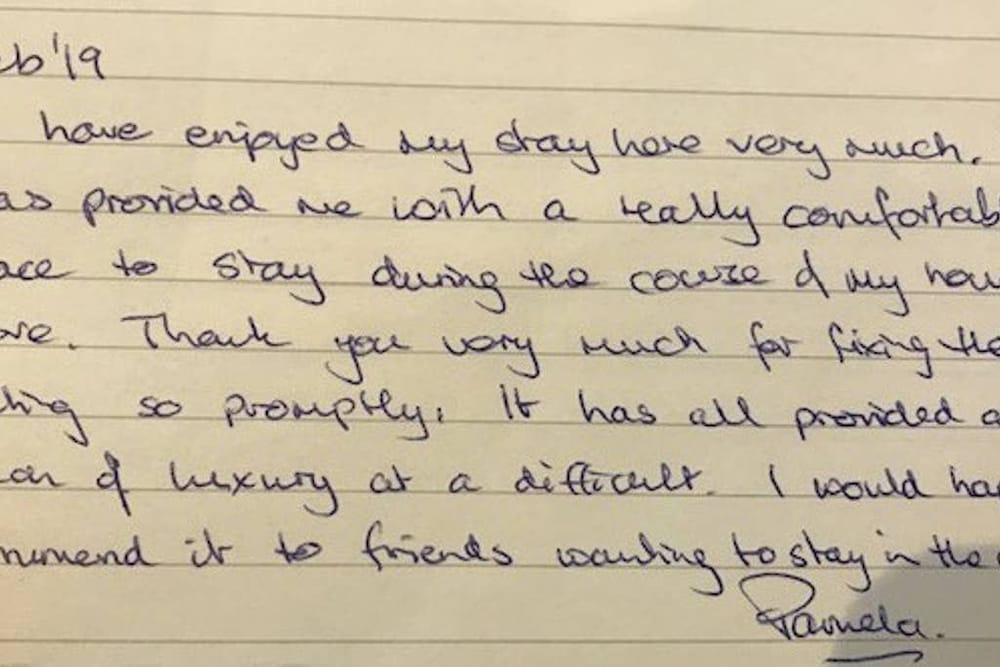 eb '19
have enjoyed my stay here very much.
as provided me with a really comfortab
ace to stay during the course of my hou
ove. Thank you very much for fixing the
ting so promptly. It has all provided a
on of luxury at a difficult. I would ha
mmend it to friends wanting to stay in the
Pamela.